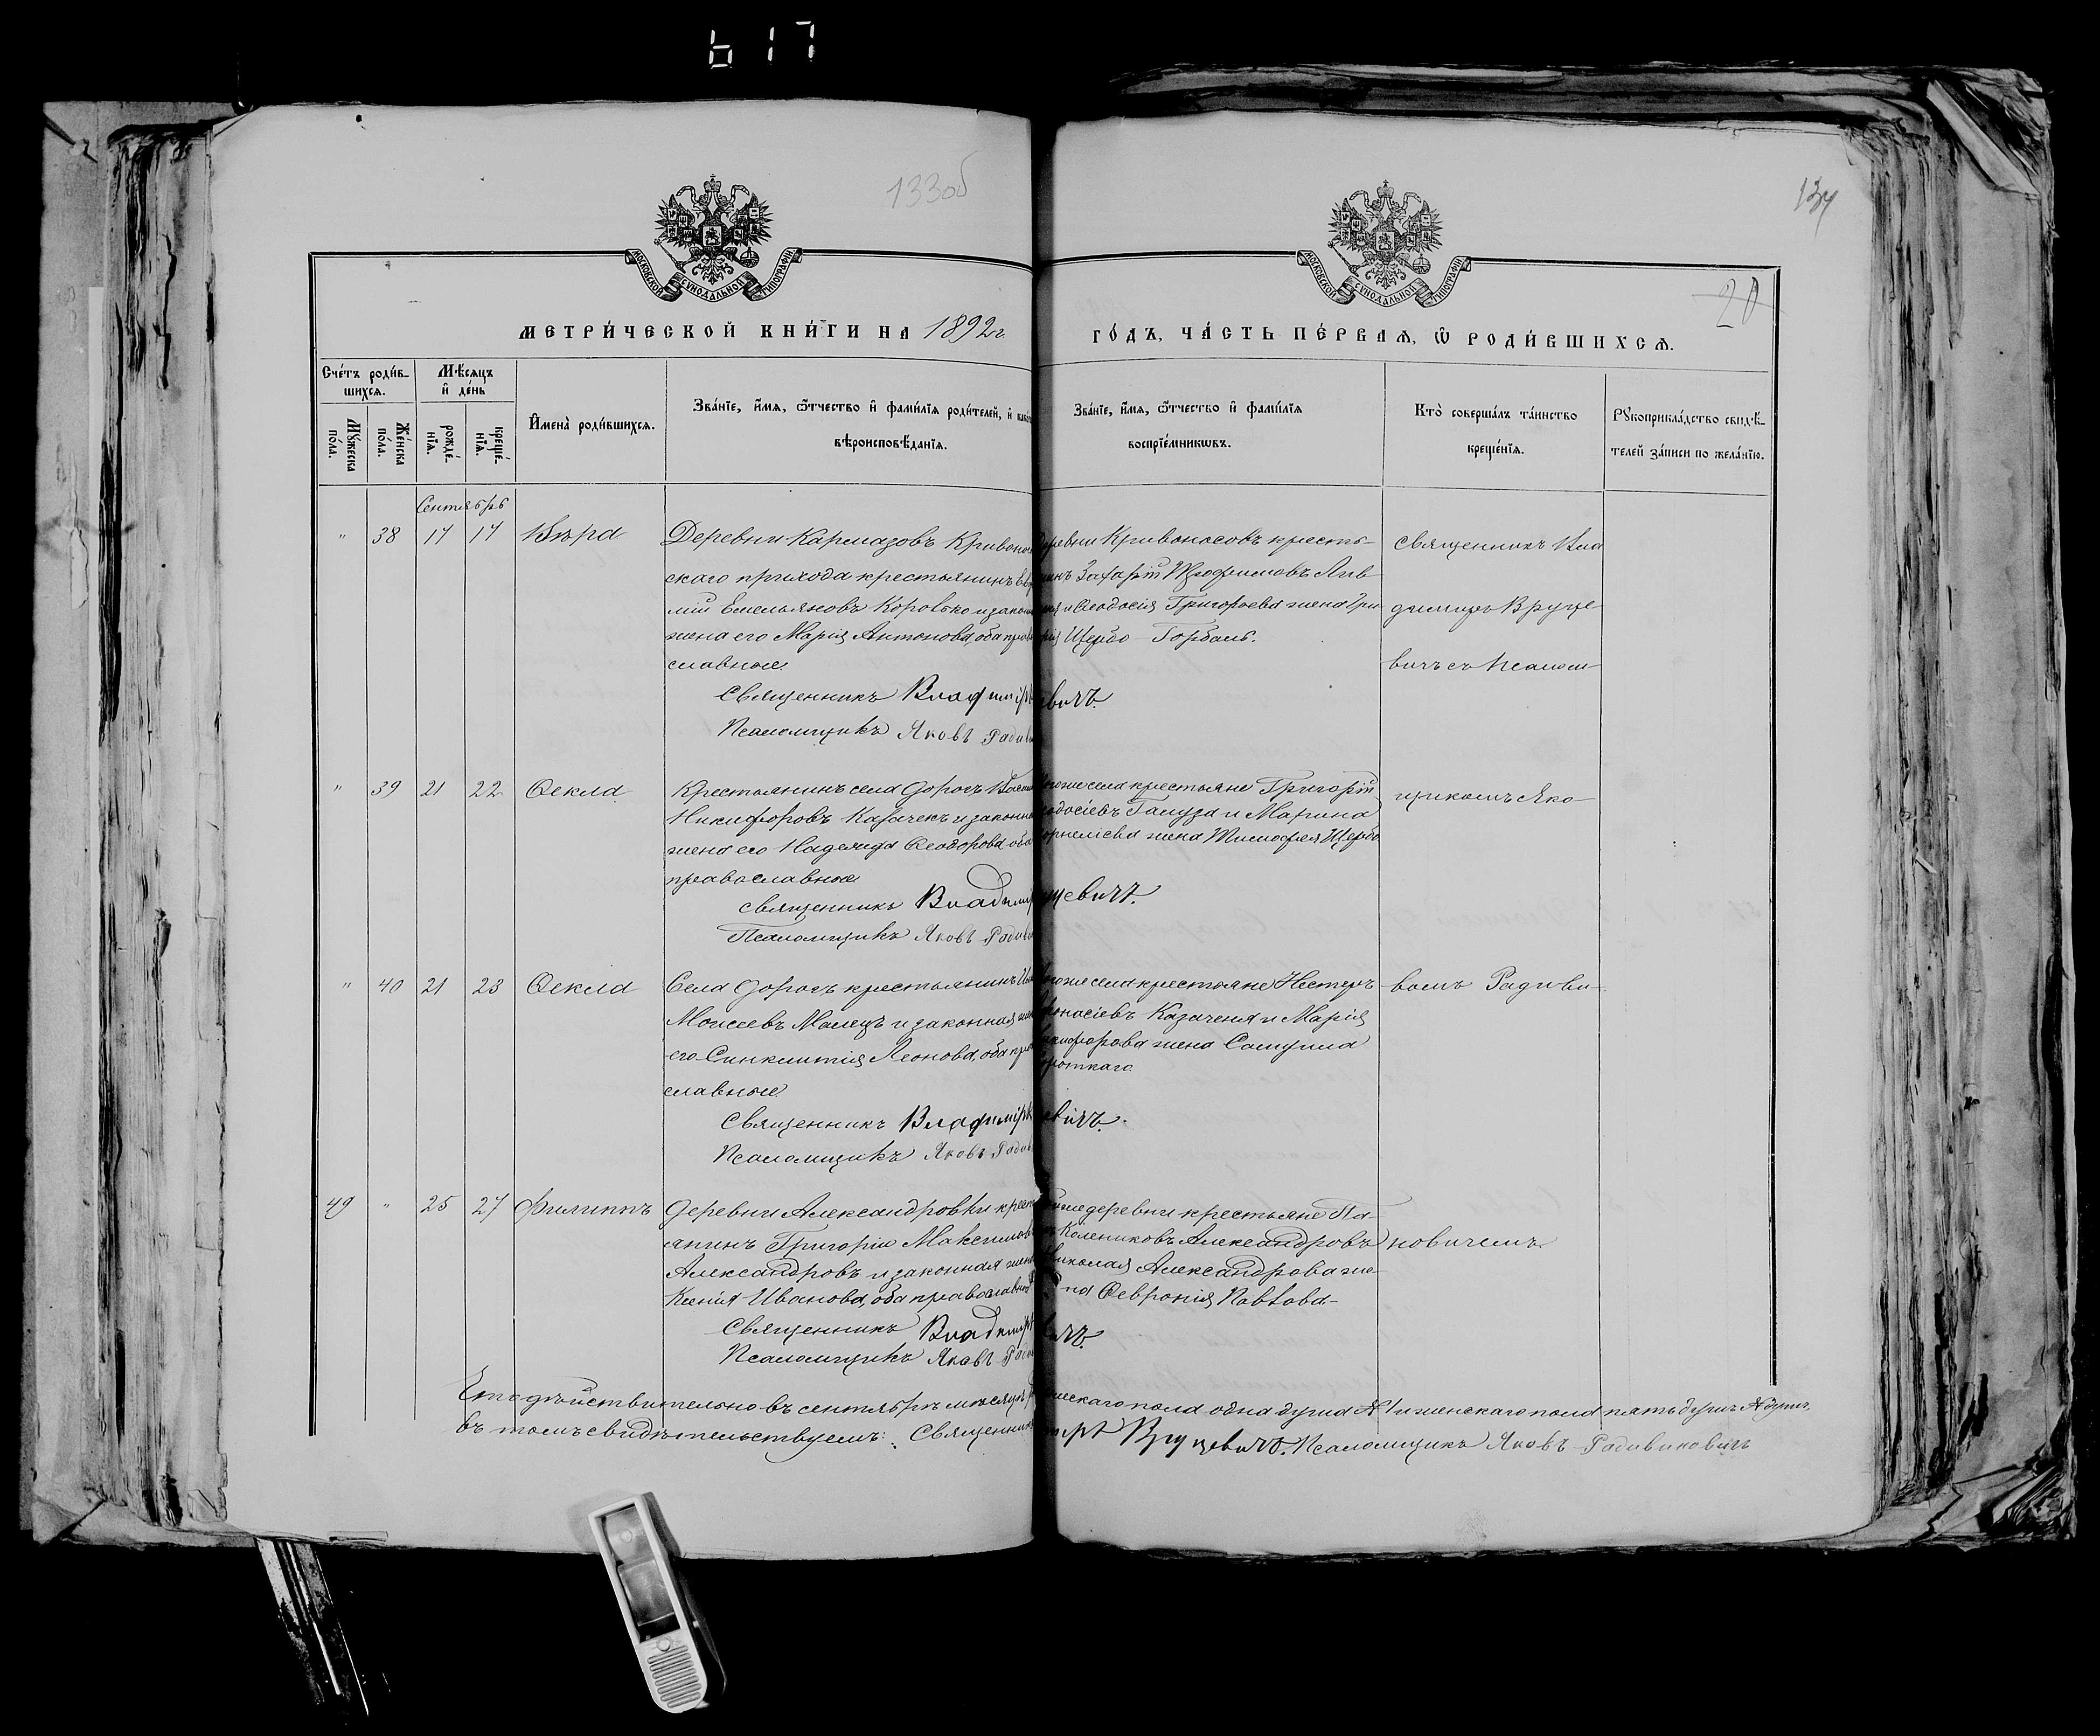 617
133об
134
МОСКОВСКОЙ СУНОДАЛЬНОЙ ТИПОГРАФІИ
МОСКОВСКОЙ СУНОДАЛЬНОЙ ТИПОГРАФІИ
20
МЕТРИ́ЧЕСКОЙ КНИ́ГИ НА 1892 г.
ГО́ДЪ, ЧА́СТЬ ПЕ́РВАѦ, Ѽ РОДИ́ВШИХСѦ.
Сче́тъ роди́в-
шихсѧ.
Мѣ́сѧцъ
и҆ де́нь
Мꙋ́жеска по́ла.
Же́нска по́ла.
рожде́-
нїѧ.
креще́-
нїѧ.
И҆мена̀ роди́вшихсѧ.
Зва́нїе, и҆́мѧ, ѻ҆́тчество и҆ фами́лїѧ роди́телей, и҆
вѣроисповѣ́данїѧ.
Зва́нїе, и҆́мѧ, ѻ҆́тчество и҆ фами́лїѧ
воспрїе́мникѡвъ.
Кто̀ соверша́лъ та́инство
креще́нїѧ.
Рꙋкоприкла́дство свидѣ́-
телей за́писи по жела́нїю.
Сентябрь
" 38 17 17 Вѣра
Деревни Кармазовъ Кривонос
скаго прихода крестьянинъ
мій Емельяновъ Коровко и закон
жена его Марія Антонова, оба право
славные
Священникъ Владиміръ
Псаломщикъ Яковъ Радиви
деревни Кривоносовъ крестья-
нинъ Захарій Трофимовъ
и Ѳеодосія Григорьева жена Гри
Щербо Горбачъ.
евичъ.
Священникъ Вла
димиръ Вруце
вичъ съ Псалом-
" 39 21 22 Ѳекла
Крестьянинъ села Дорогъ
Никифоровъ Казачекъ и законна
жена его Надежда Ѳеодорова оба
православные
Священникъ Владимір
Псаломщикъ Яковъ Радиви
тогоже села крестьяне Григорій
Ѳеодосіевъ Галуза и Марина
Корнеліева жена Тимоѳея Щербо
цевичъ.
щикомъ Яко-
" 40 21 23 Ѳекла
Села Дорогъ крестьянинъ
Моисеевъ Малецъ и законная жена
его Синклитія Леонова, оба право
славные
Священникъ Владиміръ
Псаломщикъ Яковъ Радиви
тогоже села крестьяне Нестеръ
Аѳонасіевъ Казаченя и Марія
Никифорова жена Самуила
Короткаго.
евичъ.
вомъ Радиви-
49 " 25 27 Филиппъ
Деревни Александровки крест
янинъ Григорій Максимов
Александровъ и законная жена
Ксенія Иванова, оба православные
Священникъ Владиміръ
Псаломщикъ Яковъ Ради
тойже деревни крестьяне Па-
Колениковъ Александровъ
Николая Александрова же-
на Ѳевронія Павлова
вичъ.
новичемъ.
Что дѣйствительно въ сентябрѣ мѣсяцѣ
въ томъ свидѣтельствуемъ: Священник
мужескаго пола одна душа № 1 и женскаго пола пять душъ
Вруцевичъ. Псаломщикъ Яковъ Радивиновичъ